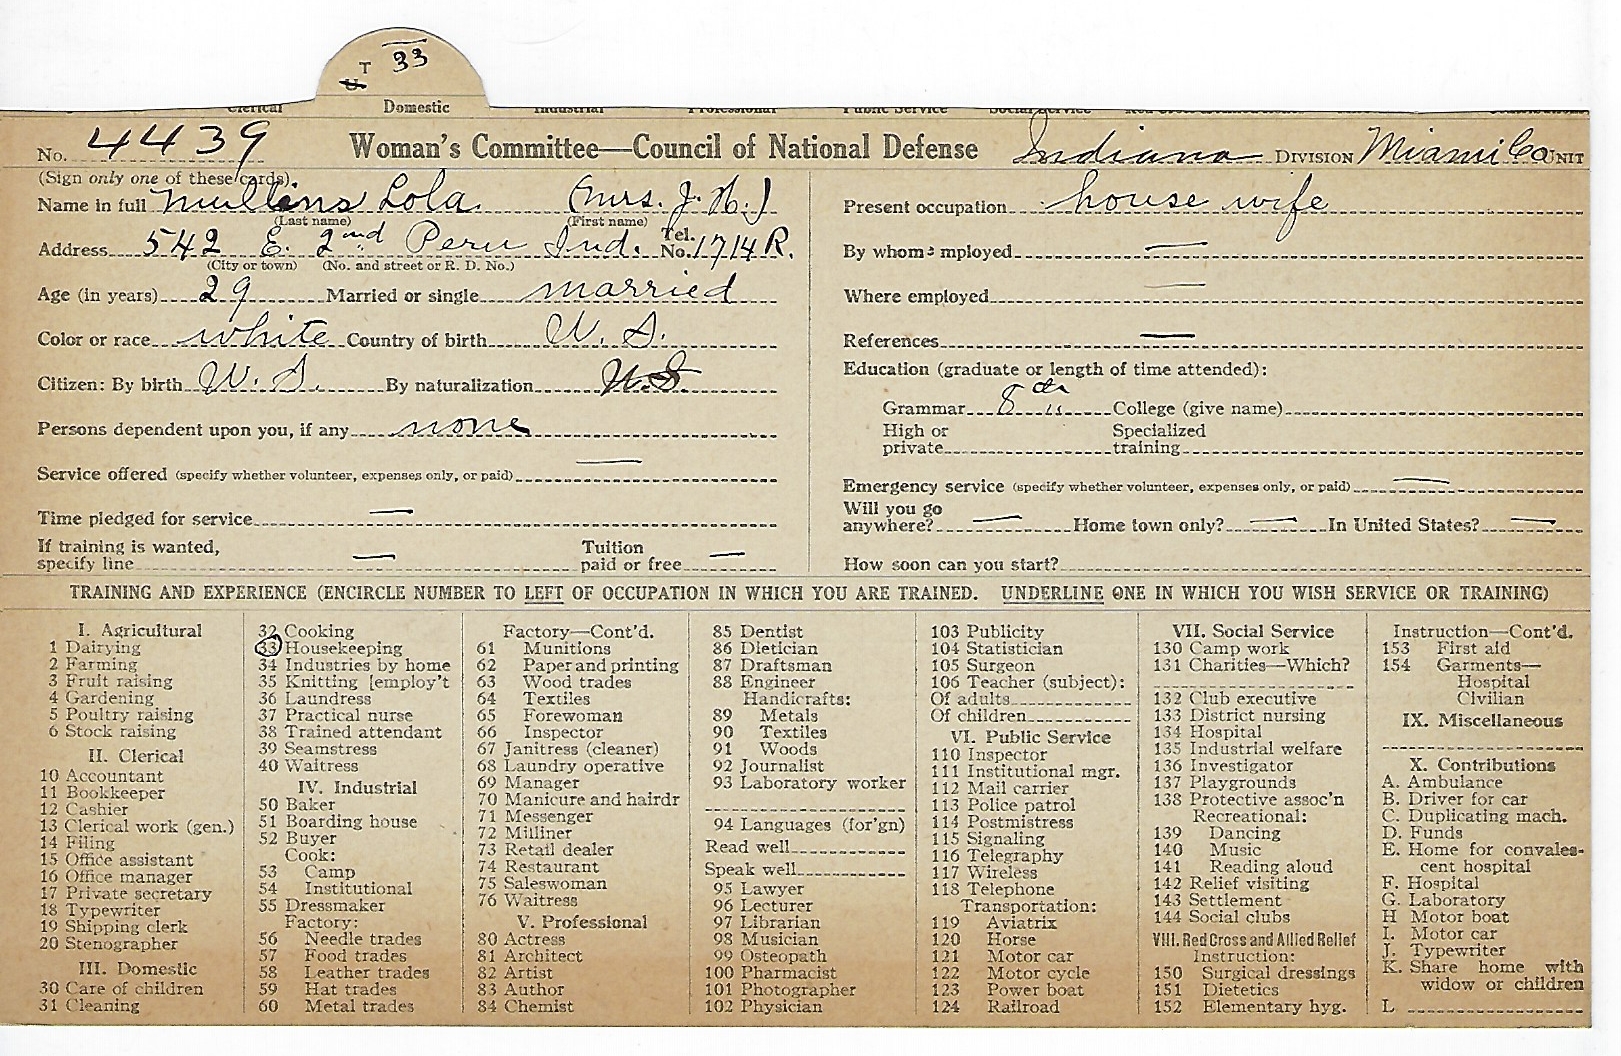 T 33
Clerical Domestic Industrial Professional Public Service Social Service
No. 4439 Woman's Committee—Council of National Defense Indiana DIVISION Miami Co UNIT
(Sign only one of these cards)
Name in full Mullins Lola (Mrs. J. H.)
(Last name) (First name)
Address 542 E. 2nd Peru Ind. Tel. No. 1714 R.
(City or town) (No. and street or R. D. No.)
Age (in years) 29 Married or single married
Color or race white Country of birth U. S.
Citizen: By birth U. S. By naturalization U.S
Persons dependent upon you, if any none
Service offered (specify whether volunteer, expenses only, or paid) —
Time pledged for service —
If training is wanted,
specify line — Tuition paid or free —
Present occupation house wife
By whom employed —
Where employed —
References —
Education (graduate or length of time attended):
Grammar 8th College (give name)
High or private Specialized training
Emergency service (specify whether volunteer, expenses only, or paid) —
Will you go
anywhere? — Home town only? — In United States? —
How soon can you start?
TRAINING AND EXPERIENCE (ENCIRCLE NUMBER TO LEFT OF OCCUPATION IN WHICH YOU ARE TRAINED. UNDERLINE ONE IN WHICH YOU WISH SERVICE OR TRAINING)
I. Agricultural
1 Dairying
2 Farming
3 Fruit raising
4 Gardening
5 Poultry raising
6 Stock raising
II. Clerical
10 Accountant
11 Bookkeeper
12 Cashier
13 Clerical work (gen.)
14 Filing
15 Office assistant
16 Office manager
17 Private secretary
18 Typewriter
19 Shipping clerk
20 Stenographer
III. Domestic
30 Care of children
31 Cleaning
32 Cooking
33 Housekeeping
34 Industries by home
35 Knitting [employ't
36 Laundress
37 Practical nurse
38 Trained attendant
39 Seamstress
40 Waitress
IV. Industrial
50 Baker
51 Boarding house
52 Buyer
Cook:
53 Camp
54 Institutional
55 Dressmaker
Factory:
56 Needle trades
57 Food trades
58 Leather trades
59 Hat trades
60 Metal trades
Factory—Cont'd.
61 Munitions
62 Paper and printing
63 Wood trades
64 Textiles
65 Forewoman
66 Inspector
67 Janitress (cleaner)
68 Laundry operative
69 Manager
70 Manicure and hairdr
71 Messenger
72 Milliner
73 Retail dealer
74 Restaurant
75 Saleswoman
76 Waitress
V. Professional
80 Actress
81 Architect
82 Artist
83 Author
84 Chemist
85 Dentist
86 Dietician
87 Draftsman
88 Engineer
Handicrafts:
89 Metals
90 Textiles
91 Woods
92 Journalist
93 Laboratory worker
94 Languages (for'gn)
Read well
Speak well
95 Lawyer
96 Lecturer
97 Librarian
98 Musician
99 Osteopath
100 Pharmacist
101 Photographer
102 Physician
103 Publicity
104 Statistician
105 Surgeon
106 Teacher (subject):
Of adults
Of children
VI. Public Service
110 Inspector
111 Institutional mgr.
112 Mail carrier
113 Police patrol
114 Postmistress
115 Signaling
116 Telegraphy
117 Wireless
118 Telephone
Transportation:
119 Aviatrix
120 Horse
121 Motor car
122 Motor cycle
123 Power boat
124 Railroad
VII. Social Service
130 Camp work
131 Charities—Which?
132 Club executive
133 District nursing
134 Hospital
135 Industrial welfare
136 Investigator
137 Playgrounds
138 Protective assoc'n
Recreational:
139 Dancing
140 Music
141 Reading aloud
142 Relief visiting
143 Settlement
144 Social clubs
VIII. Red Cross and Allied Relief
Instruction:
150 Surgical dressings
151 Dietetics
152 Elementary hyg.
Instruction—Cont'd.
153 First aid
154 Garments—
Hospital
Civilian
IX. Miscellaneous
X. Contributions
A. Ambulance
B. Driver for car
C. Duplicating mach.
D. Funds
E. Home for convales-
cent hospital
F. Hospital
G. Laboratory
H Motor boat
I. Motor car
J. Typewriter
K. Share home with
widow or children
L